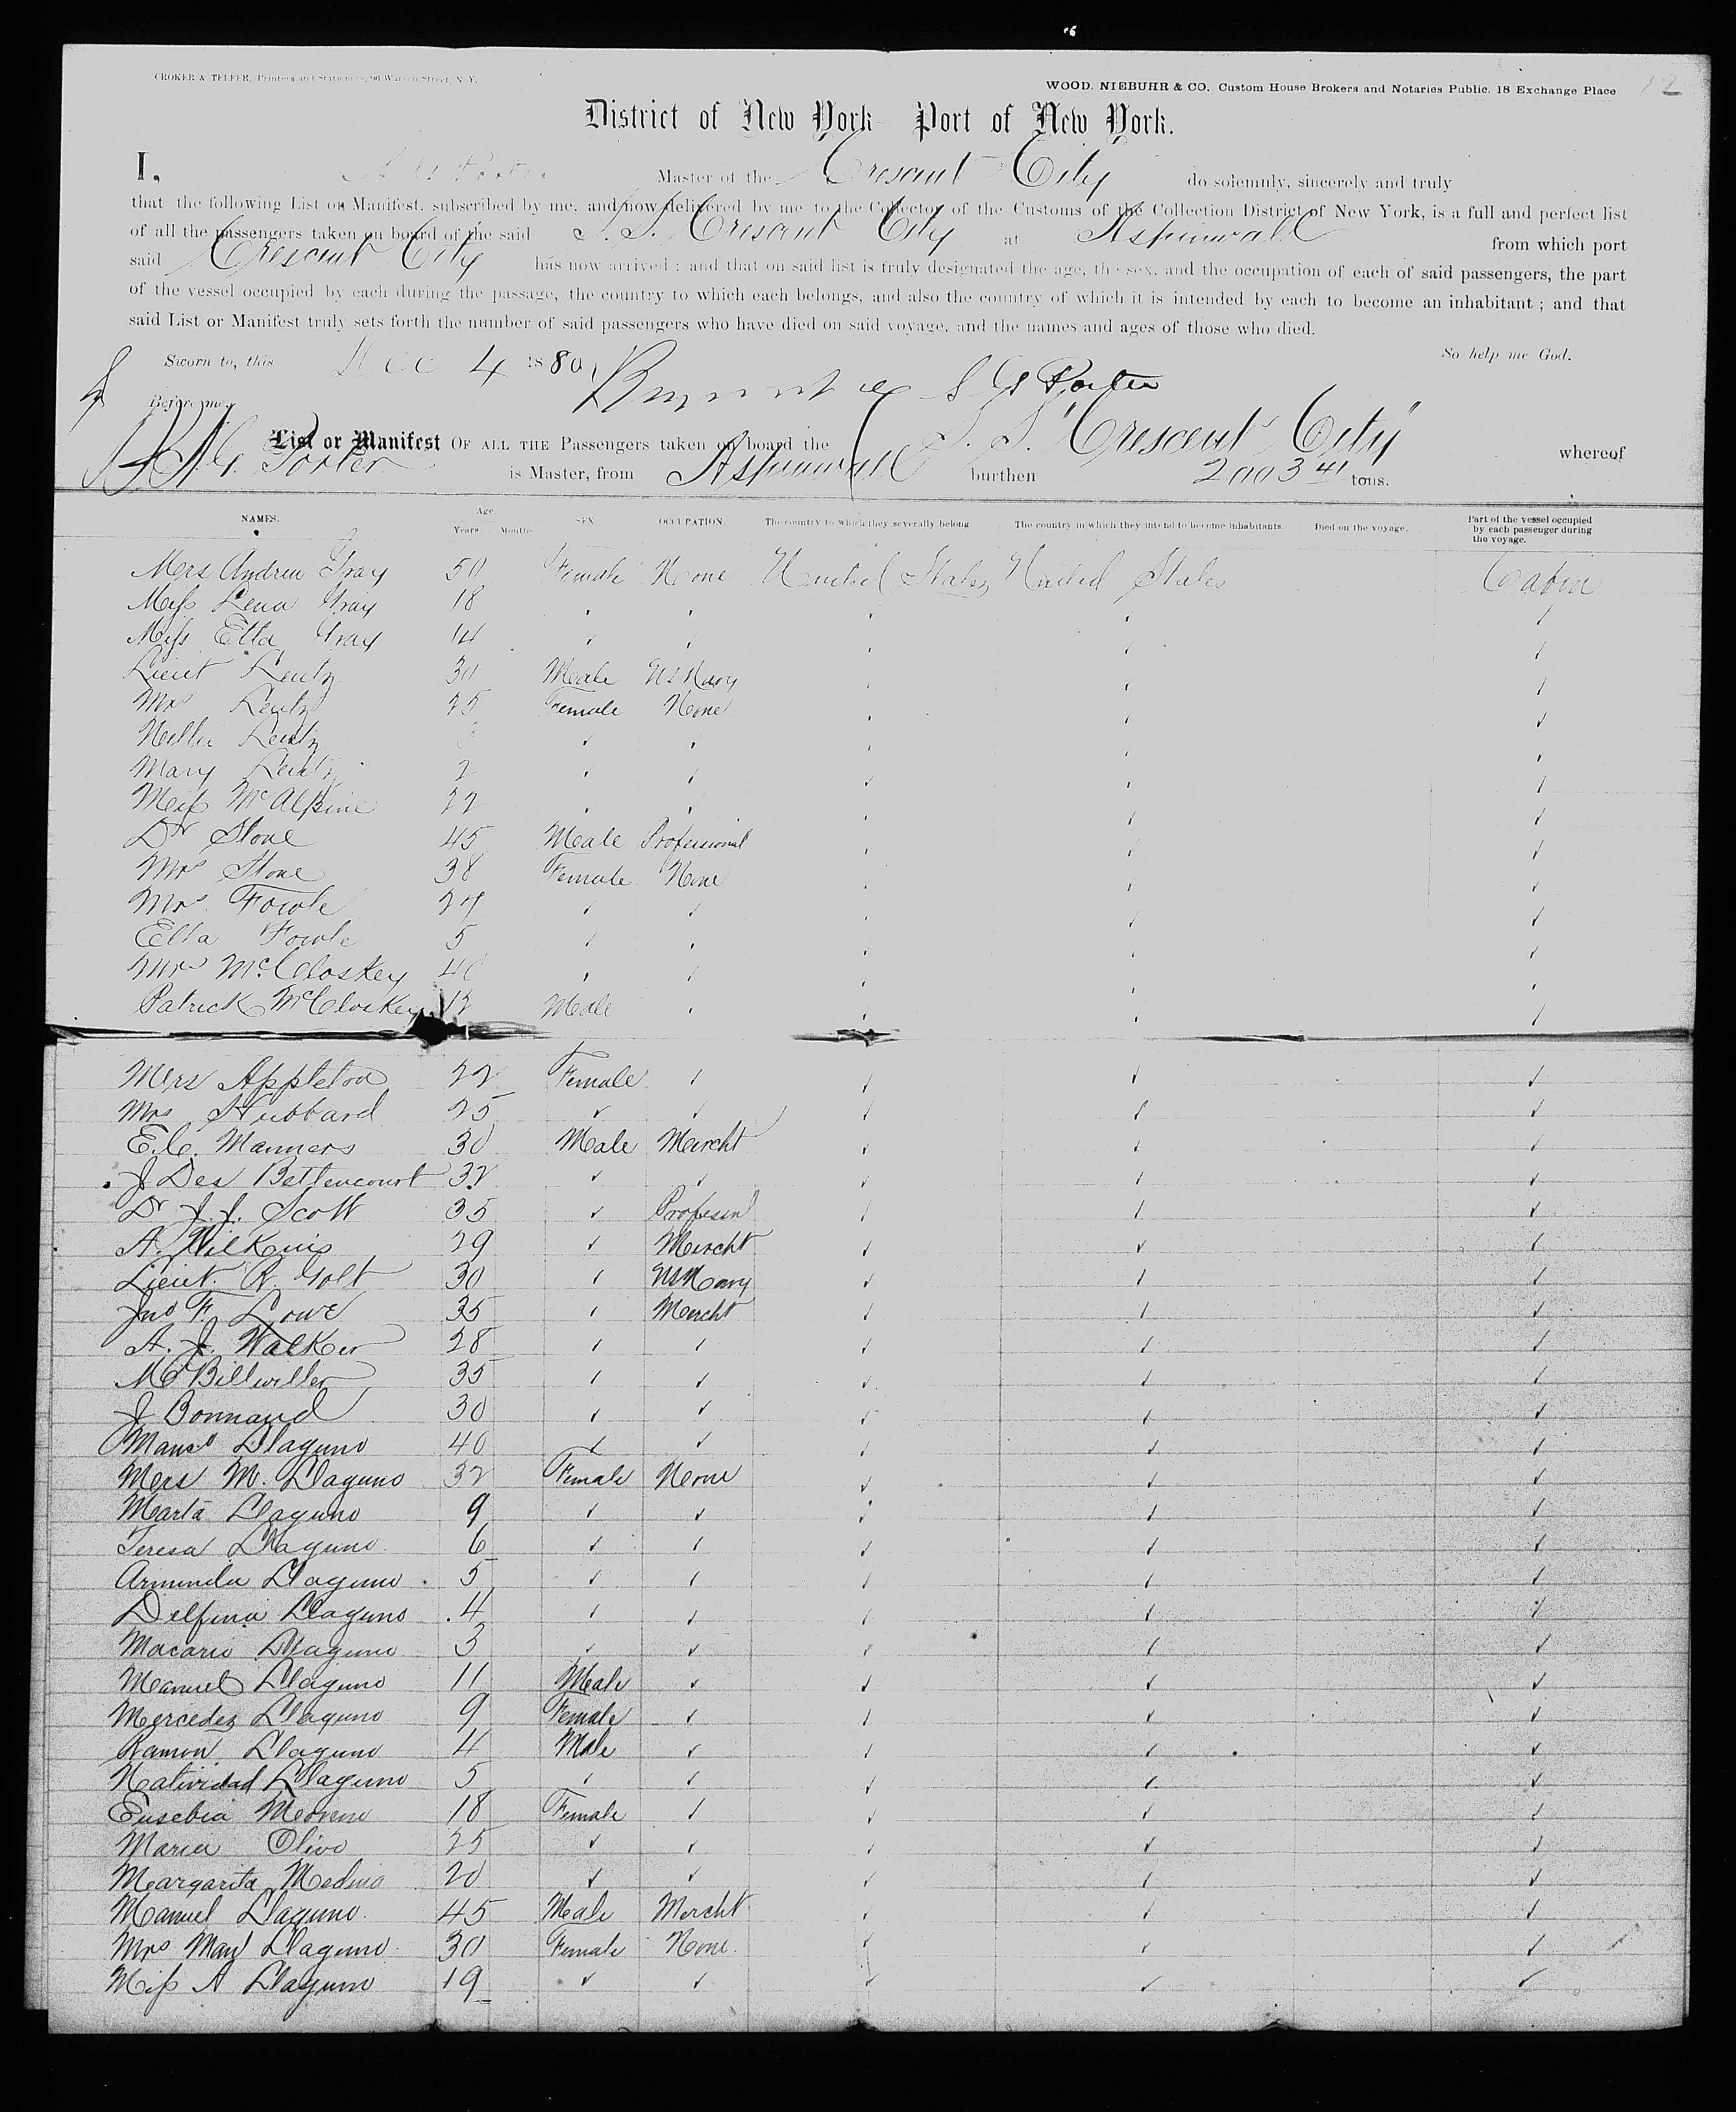 CROKER & TELFER, Printers and Stationers, 96 Warren Street, N. Y.
WOOD, NIEBUHR & CO. Custom House Brokers and Notaries Public, 18 Exchange Place
District of New York Port of New York.
I, S G Porter Master of the Crescent City do solemnly, sincerely and truly
that the following List or Manifest, subscribed by me, and now delivered by me to the Collector of the Customs of the Collection District of New York, is a full and perfect list
of all the passengers taken on board of the said S. S. Crescent City at Aspinwall from which port
said Crescent City has now arrived; and that on said list is truly designated the age, the sex, and the occupation of each of said passengers, the part
of the vessel occupied by each during the passage, the country to which each belongs, and also the country of which it is intended by each to become an inhabitant; and that
said List or Manifest truly sets forth the number of said passengers who have died on said voyage, and the names and ages of those who died.
Sworn to, this Dec 4 1880 So help me God.
S G Porter
Before me,
List or Manifest OF ALL THE Passengers taken on board the S. S. "Crescent City" whereof
S. G. Porter is Master, from Aspinwall burthen 2003 41 tons.
NAMES. Age. Years Months SEX OCCUPATION. The country to which they severally belong The country in which they intend to become inhabitants. Died on the voyage. Part of the vessel occupied by each passenger during the voyage.
Mrs Andrew Gray 50 Female None United States United States Cabin
Miss Lena Gray 18
Miss Etta Gray 14
Lieut Lentz 30 Male US Navy
Mrs Lentz 25 Female None
Nellie Lentz
Mary Lentz 2
Miss McAlpine 22
Dr Stone 45 Male Professional
Mrs Stone 38 Female None
Mrs Fowle 27
Etta Fowle 5
Mrs McCloskey 40
Patrick McCloskey 12 Male
Mrs Appleton 22 Female
Mrs Hubbard 25
E. C. Manners 30 Male Mercht
J Des Bettencourt 32
Dr J. J. Scott 35 Profesnl
A. Wilkins 29 Mercht
Lieut. R. Galt 30 US Navy
Jno F. Lowe 35 Mercht
A. J. Walker 28
M Billwiller 35
J Bonnand 30
Manl Llaguno 40
Mrs M. Llaguno 32 Female None
Marta Llaguno 9
Teresa Llaguno 6
Arminda Llaguno 5
Delfina Llaguno 4
Macario Llaguno 3
Manuel Llaguno 11 Male
Mercedez Llaguno 9 Female
Ramon Llaguno 4 Male
Natividad Llaguno 5
Eusebia Moreno 18 Female
Maria Olivo 25
Margarita Medina 20
Manuel Llaguno 45 Male Mercht
Mrs Manl Llaguno 30 Female None
Miss A Llaguno 19